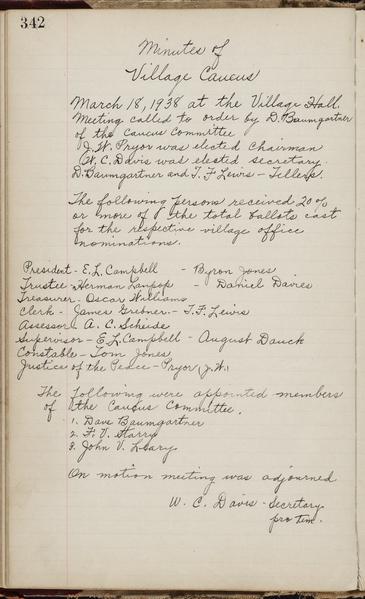 342
Minutes of
Village Caucus
March 18, 1938 at the Village Hall.
Meeting called to order by D. Baumgartner
of the Caucus Committee
J. W. Pryor was elected Chairman
W. C. Davis was elected secretary.
D. Baumgartner and T. F Lewis - Tellers.
The following persons received 20%
or more of the total ballots cast
for the respective village office
nominations.
President - E. L. Campbell - Byron Jones
Trustee - Herman - Daniel Davies
Treasurer - Oscar Williams
Clerk - James Grebner - T. F. Lewis
Assessor - A. C. Scheide
Supervisor - E L. Campbell - August Dauck
Constable - Tom Jones
Justice of the Peace - Pryor (J. W.)
The following were appointed members
of the Caucus Committee.
1. Dave Baumgartner
2. F. V. Starry
3. John V. Leary
On motion meeting was adjourned
W. C. Davis - Secretary
pro tem.